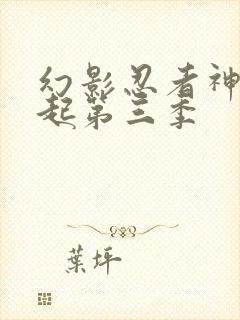 幻影忍者神
起第三季
葉坪